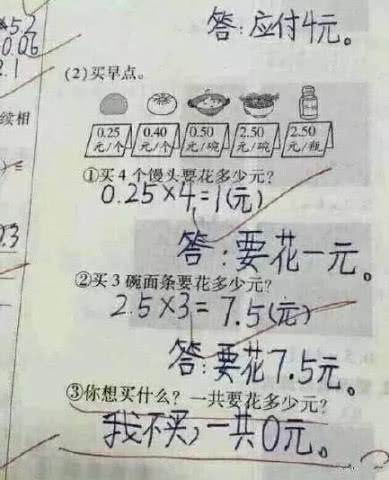 *5.2
0.06
2.1
答:应付4元。
(2)买早点。
续相
0.25 元/个 0.40 元/个 0.50 元/碗 2.50 元/碗 2.50 元/瓶
①买4个馒头要花多少元?
0.25×4=1(元)
0.3
答:要花一元。
②买3碗面条要花多少元?
2.5×3=7.5(元)
答:要花7.5元。
③你想买什么?一共要花多少元?
我不买,一共0元。